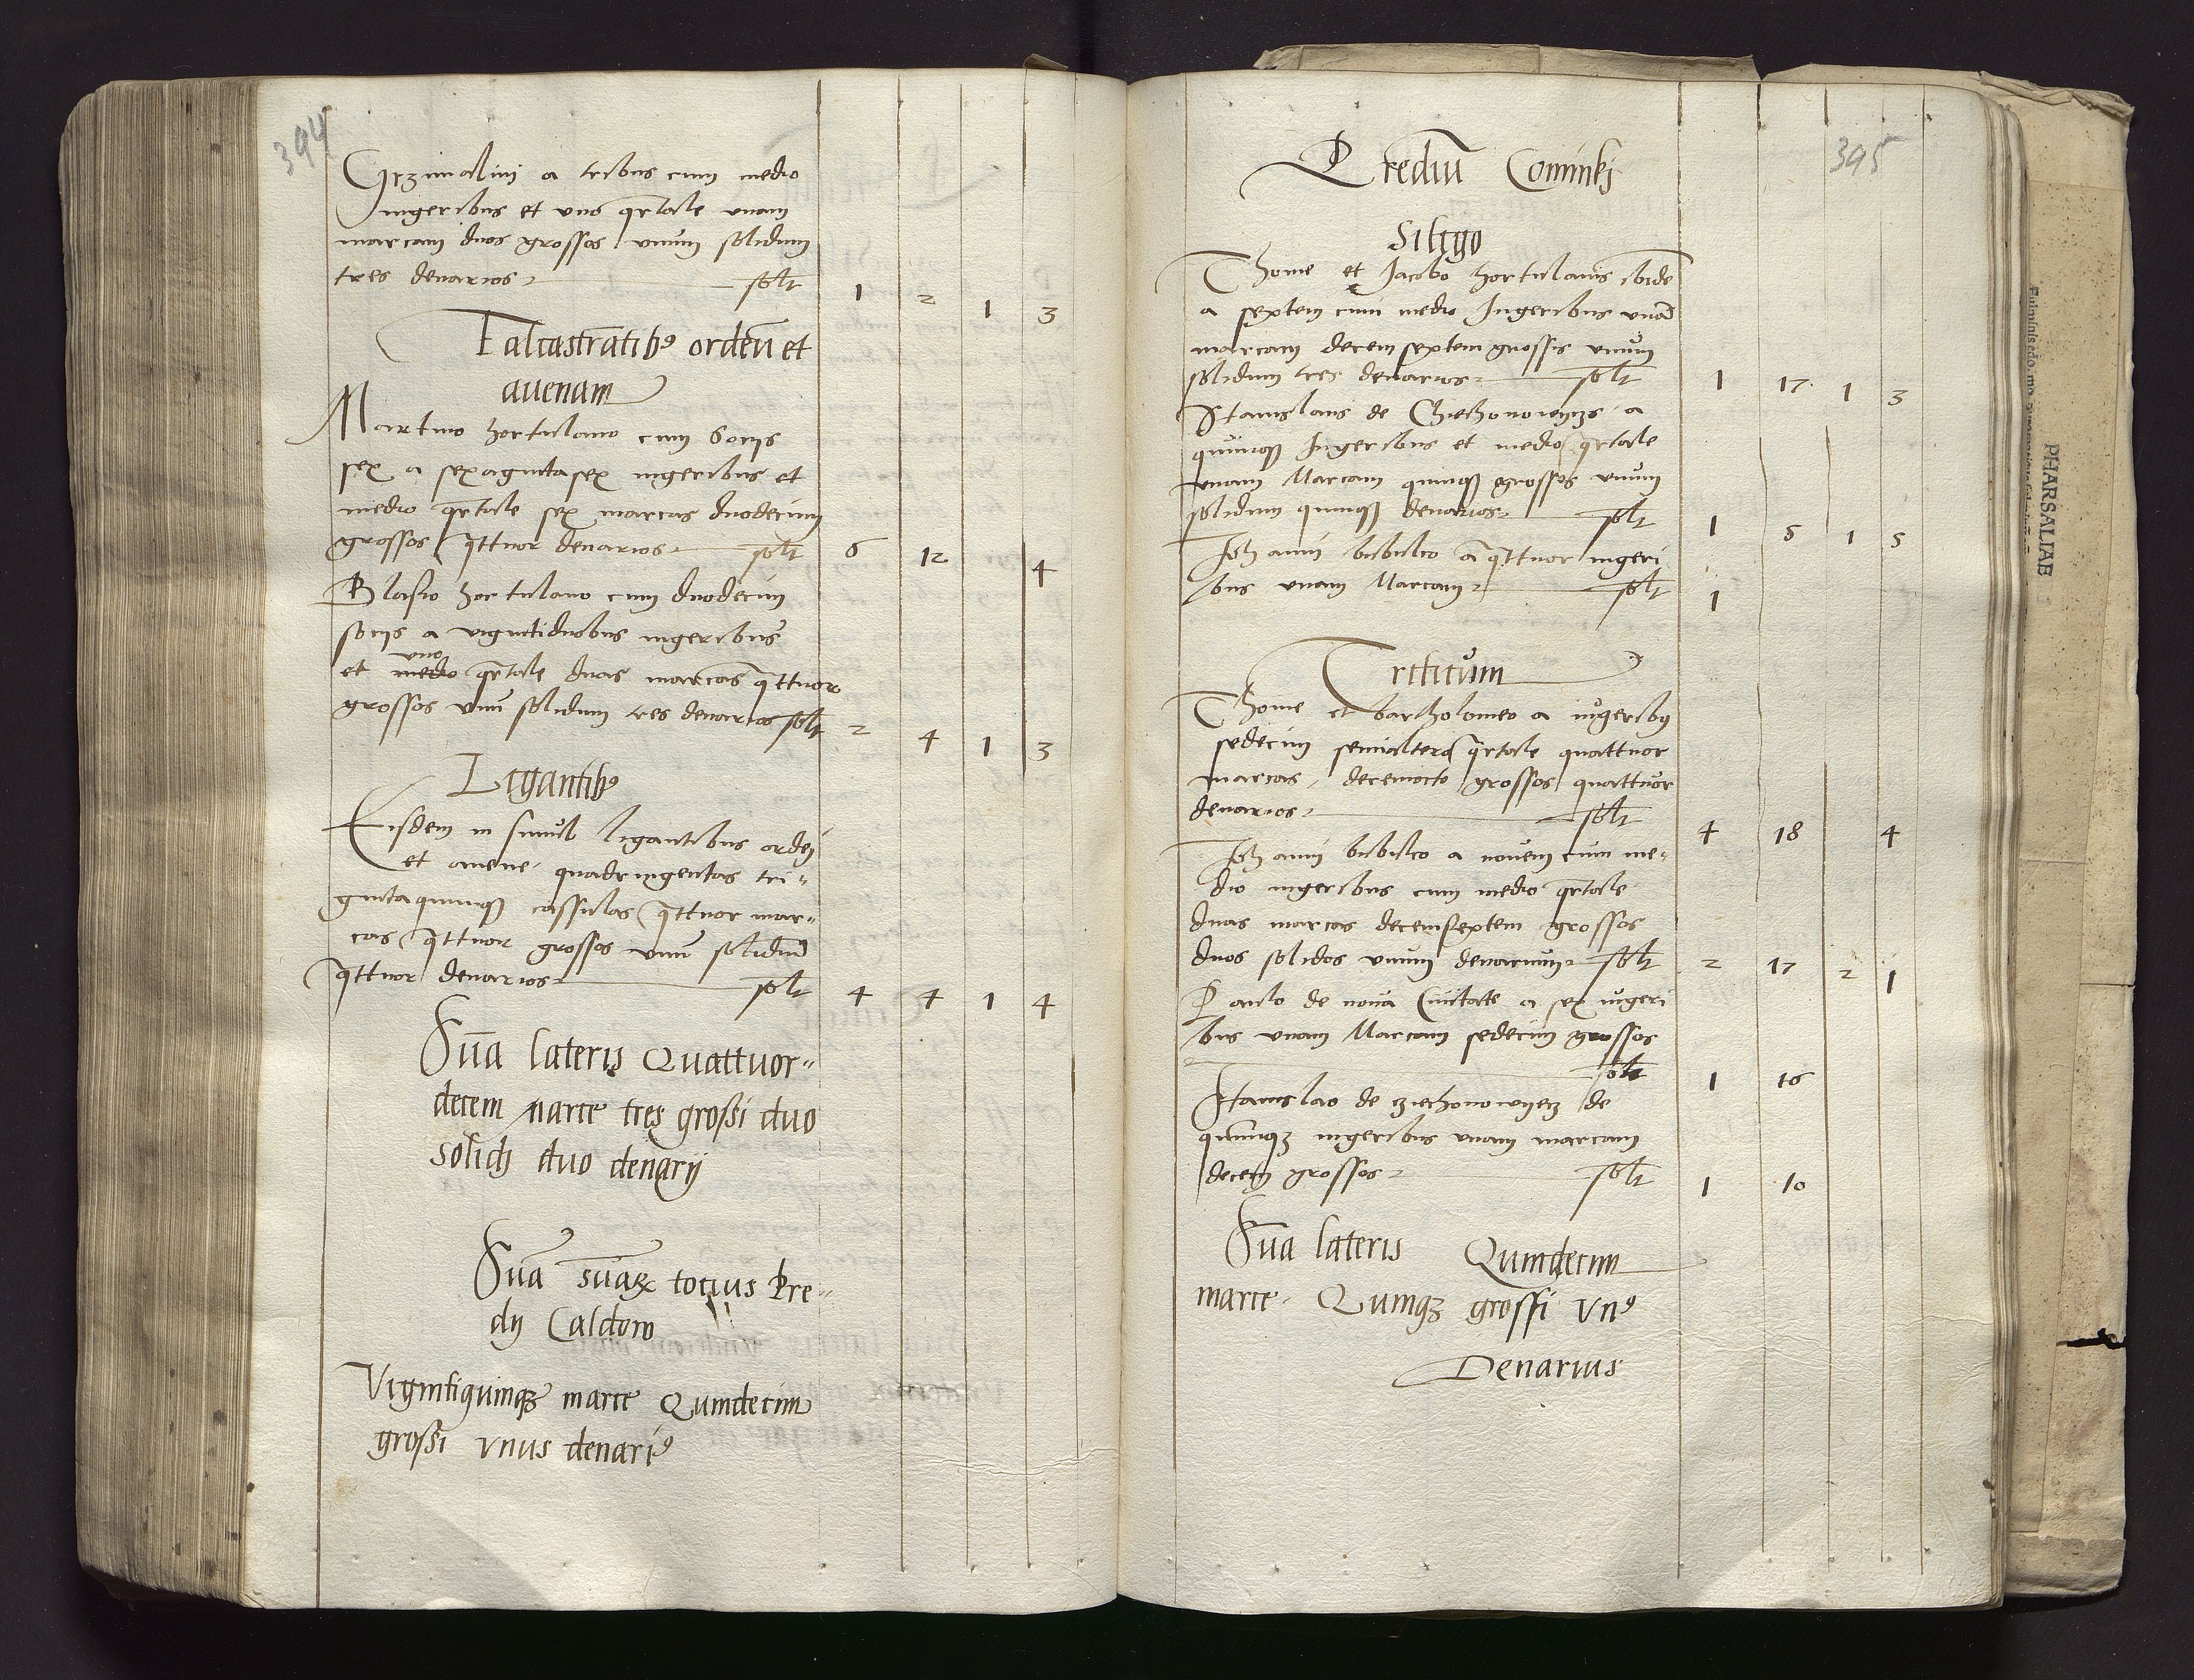 394
Grzimalinj a tribus cum medio
Jugeribus et vno qrtale vnam
marcam duos grossos vnum solidum
tres denarios solt 1 2 1 3
Falcastrātibꝰ ordeū et
auenam
Martino hortulano cum Socijs
sex a sexagintasex iugeribus et
medio qrtale sex marcas duodecim
grossos qttuor denarios solt 6 12 4
Blasio hortulano cum duodecim
socijs a vigintiduobus iugeribus
vno
et medio qrtale duas marcas qttuor
grossos vnū solidum tres denarios solt 2 4 1 3
Ligantibꝰ
Eisdem in simul ligantibus ordej
et auene quadringentas tri-
gintaquinqꝫ cassulas qttuor mar-
cas qttuor grossos vnū solidum
qttuor denarios solt 4 4 1 4
Sūa lateris Quattuor-
decem marce tres grossi duo
solidj duo denarij
Sūa sūaꝝ totius Pre-
dij Caldow
Vigintiquinqꝫ marce Quindecim
grossi vnus denariꝰ
395
Prediū Cominkj
Siligo
Thome et Jacobo hortulanis ibidē
a septem cum medio Jugeribus vnā
marcam decem septem grossis vnum
solidum tres denarios solt 1 17 1 3
Stanislaus de a
quinqꝫ Jugeribus et medio qrtale
vnam Marcam quinqꝫ grossos vnum
solidum quinqꝫ denarios solt 1 5 1 5
bubulco a qttuor iugeri
bus vnam Marcam solt 1
Triticum
Thome et bartholomeo a iugeribꝰ
sedecim semialtera qrtale quattuor
marcas decemocto grossos quattuor
denarios solt 4 18 4
bubulco a nouem cum me-
dio iugeribus cum medio qrtale
duas marcas decemseptem grossos
duos solidos vnum denarium solt 2 17 2 1
Paulo de noua Ciuitate a sex iugeri
bus vnam Marcam sedecim grossos
solt 1 16
Stanislao de cziechonowyecz de
quinqꝫ iugeribus vnam marcam
decem grossos solt 1 10
Sūa lateris Quindecim
marce Quinqꝫ grossi vnꝰ
Denarius
PHARSALIAE